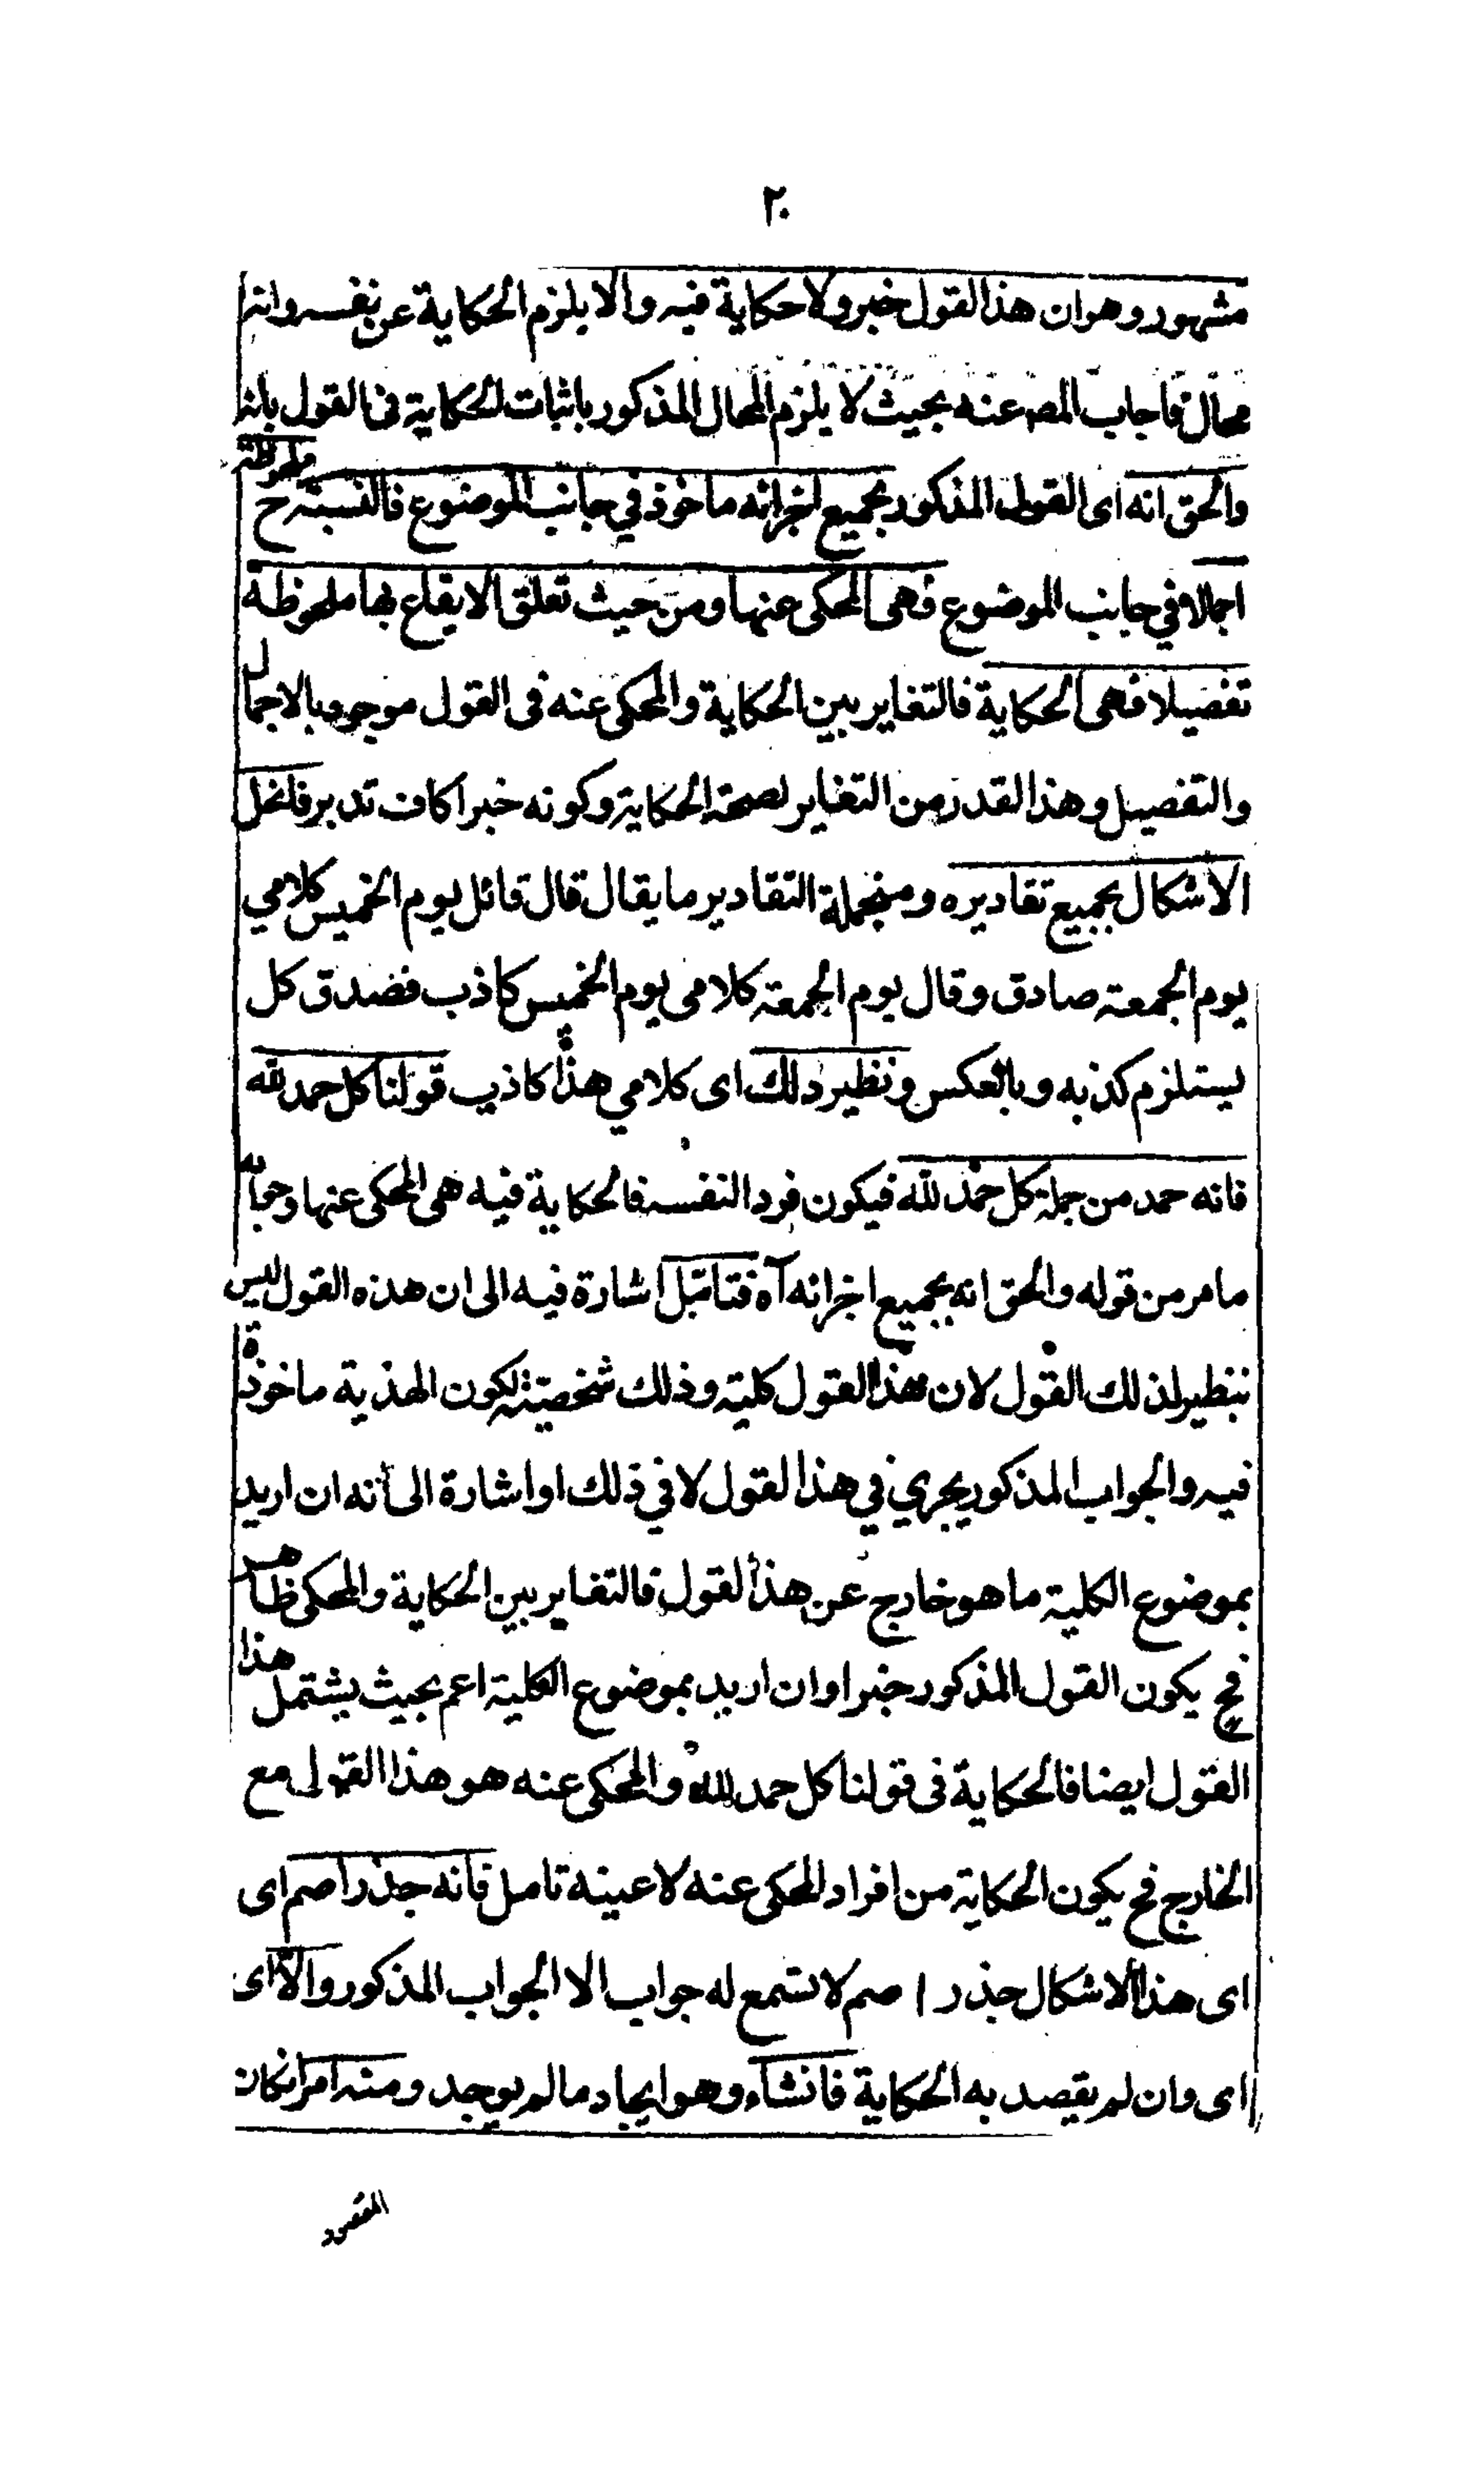 ٢٠
مشهور وهو ان هذا القول خبر ولا حكاية فيه والا يلزم الحكاية عن نفسه وانه
محال فاجاب المصـ عنه بحيث لا يلزم المحال المذكور باثبات الحكاية فى القول بانه
والحق انه اى القول المذكور بجميع اجزائه ماخوذ في جانب الموضوع فالنسبة ح ملحوظة
اجمالا في جانب الموضوع فهى المحكى عنها ومن حيث تعلق الايقاع بها ملحوظة
تفصيلا فهى الحكاية فالتغاير بين الحكاية والمحكى عنه فى القول موجود بالاجمال
والتفصيل وهذا القدر من التغاير لصحة الحكاية وكونه خبرا كاف تدبر فانحل
الاشكال بجميع تقاديره ومنجملة التقادير ما يقال قال قائل يوم الخميس كلامي
يوم الجمعة صادق وقال يوم الجمعة كلامى يوم الخميس كاذب فصدق كل
يستلزم كذبه وبالعكس ونظير ذلك اى كلامي هذا كاذب قولنا كل حمد لله
فانه حمد من جملة كل حمد لله فيكون فردا لنفسه فالحكاية فيه هى المحكى عنها وجوابه
مامر من قوله والحق انه بجميع اجزائه آه فتامّل اشارة فيه الى ان هذه القول ليس
بنظير لذلك القول لان هذا القول كلية وذلك شخصيّة لكون الهذية ماخوذة
فيه والجواب المذكور يجري في هذا القول لا في ذلك او اشارة الى أنه ان اريد
بموضوع الكلية ما هو خارج عن هذا لقول فالتغاير بين الحكاية والمحكى ظاهر
فح يكون القول المذكور خبرا وان اريد بموضوع الكلية اعم بحيث يشتمل هذا
القول ايضا فالحكاية فى قولنا كل حمد لله والمحكى عنه هو هذا القول مع
الخارج فح يكون الحكاية من افراد المحكى عنه لا عينه تامل فانه جذر اصم اى
اى هذا الاشكال جذر اصم لا تسمع له جواب الا الجواب المذكور والا اى
اى وان لم يقصد به الحكاية فانشاء وهو ايجاد مالم يوجد ومنه امران كان
المقصود